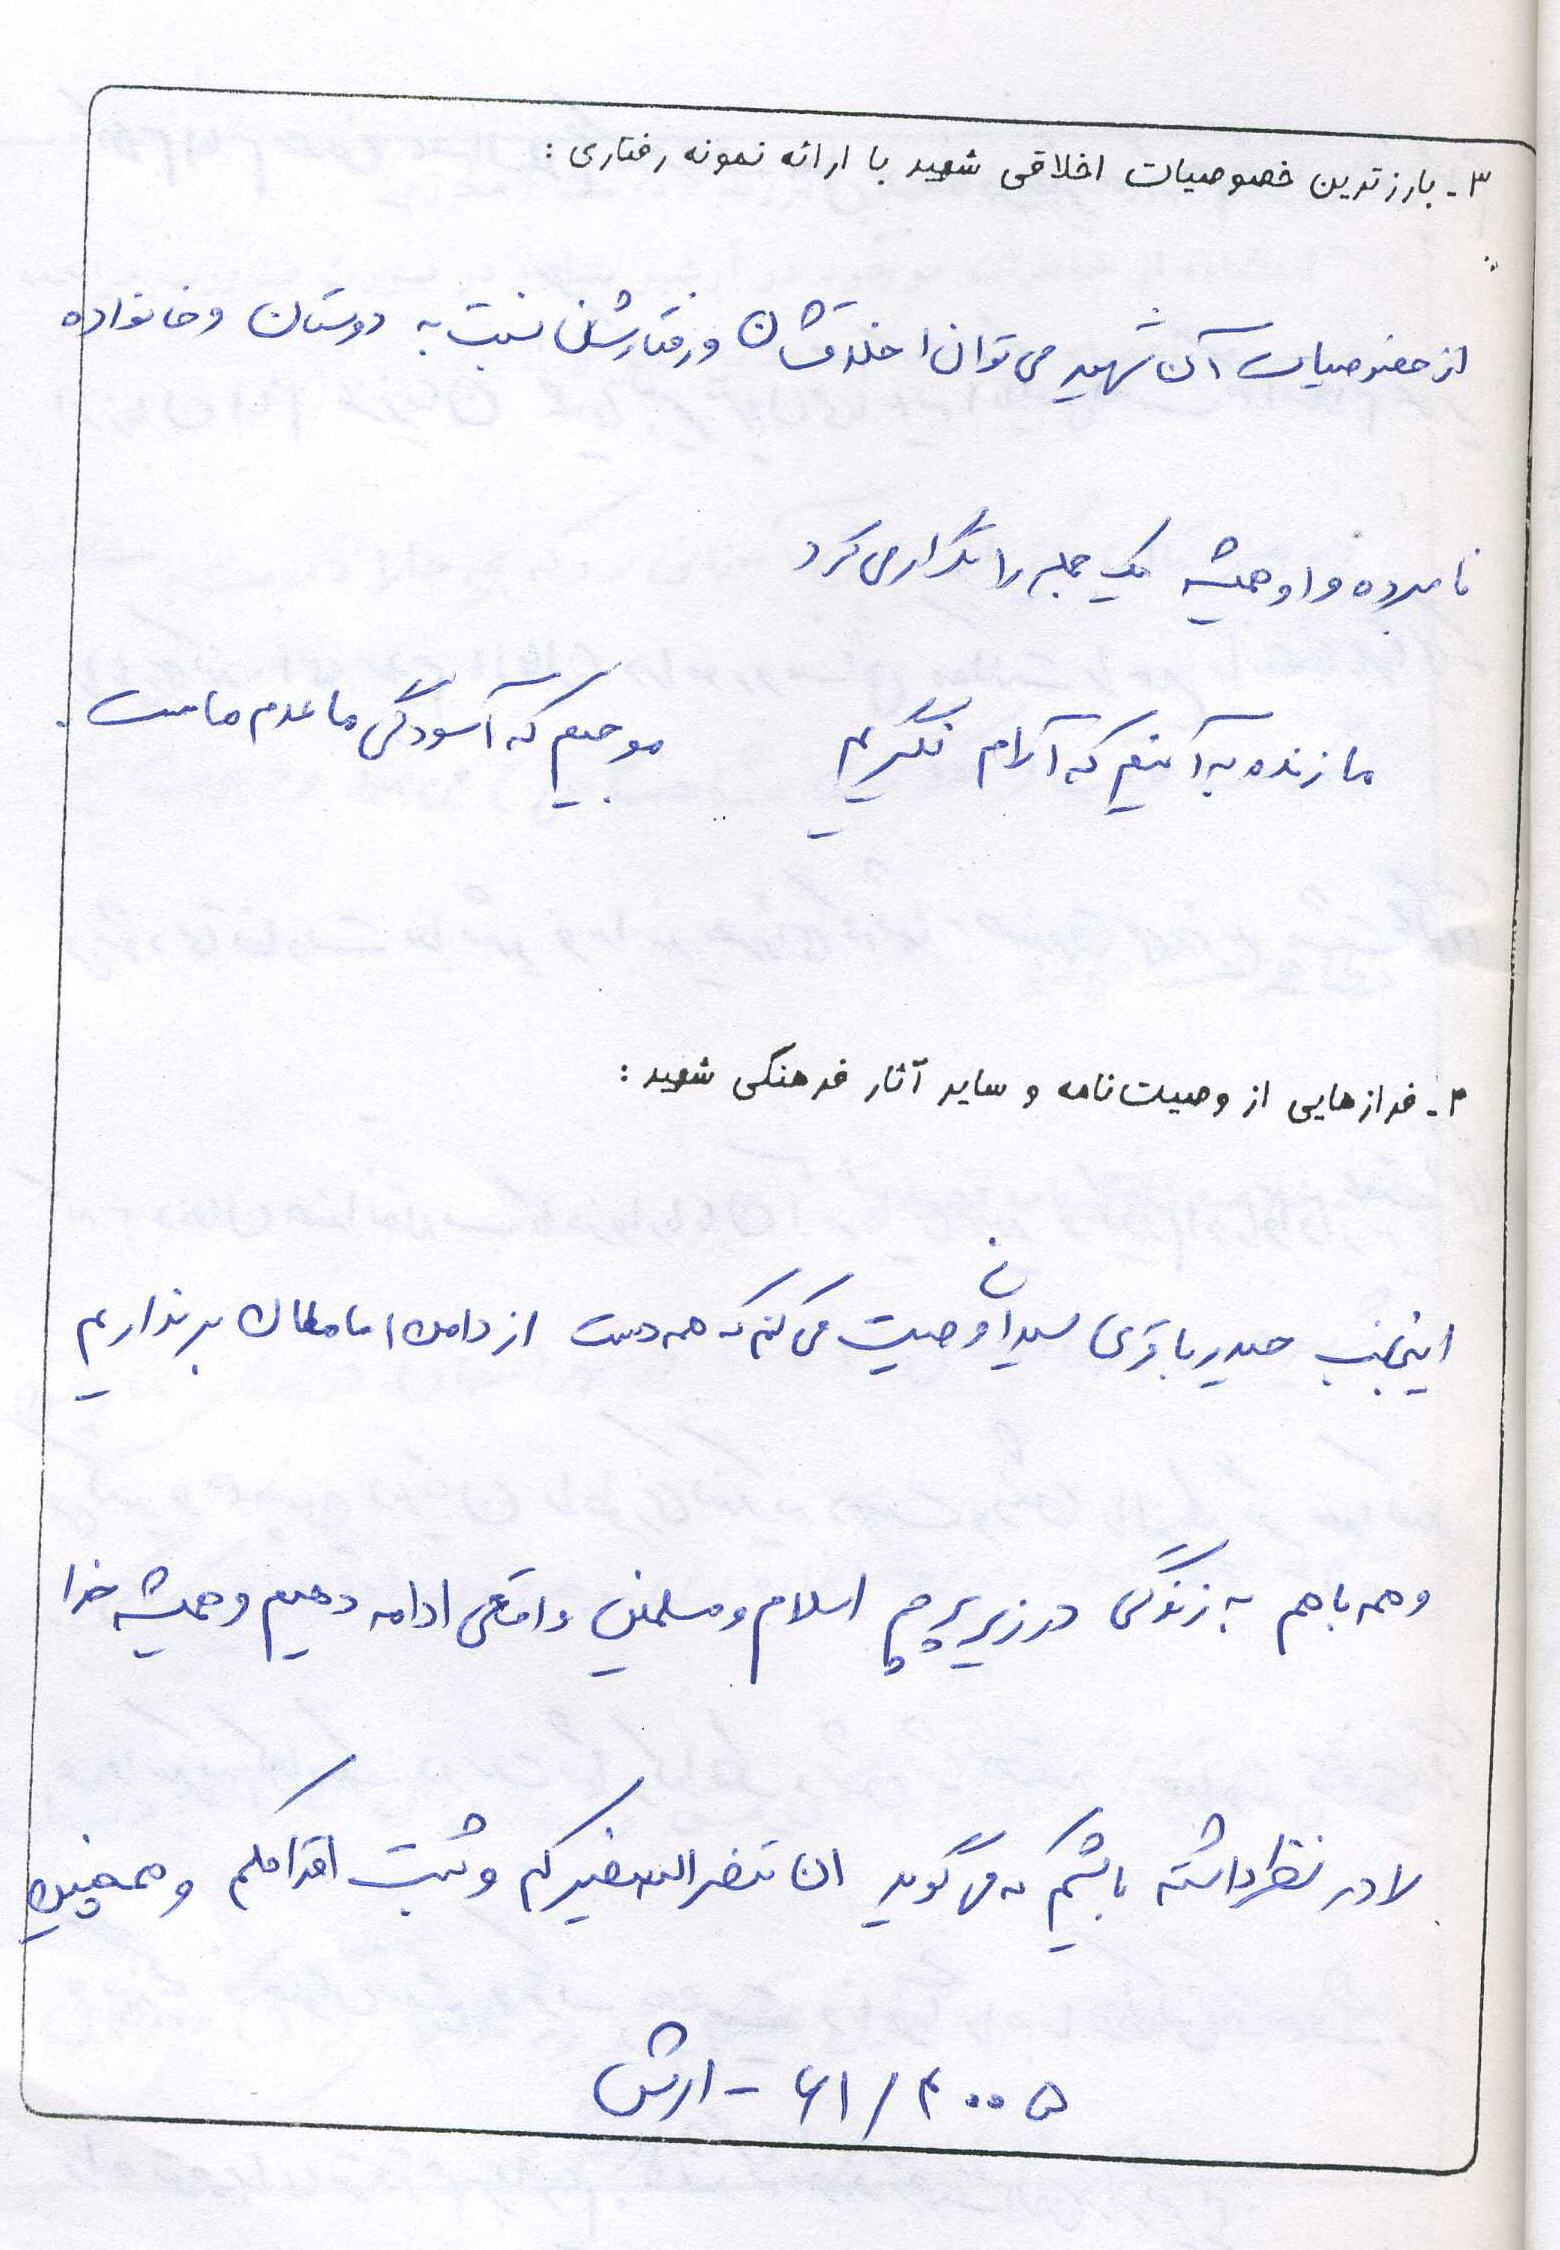 ۳- بارزترین خصوصیات اخلاقی شهید با ارائه نمونه رفتاری :
از خصوصیات آن شهید می توان اخلاقشان و رفتارشان نسبت به دوستان و خانواده
نامبرده و او همیشه یک جمله را تکرار می کرد
ما زنده به آنیم که آرام نگیریم    موجیم که آسودگی ما عدم ماست .
۴- فرازهایی از وصیت‌نامه و سایر آثار فرهنگی شهید :
اینجانب حیدر باقری وصیت می کنم که همه دست از دامن امامان بر نداریم
و همه با هم به زندگی در زیر پرچم اسلام و مسلمین واقعی ادامه دهیم و همیشه خدا
را در نظر داشته باشیم که می گوید ان تنصر الله ینصرکم و ثبت اقدامکم و همچنین
۶۱/۴۰۰۵ - ارتش